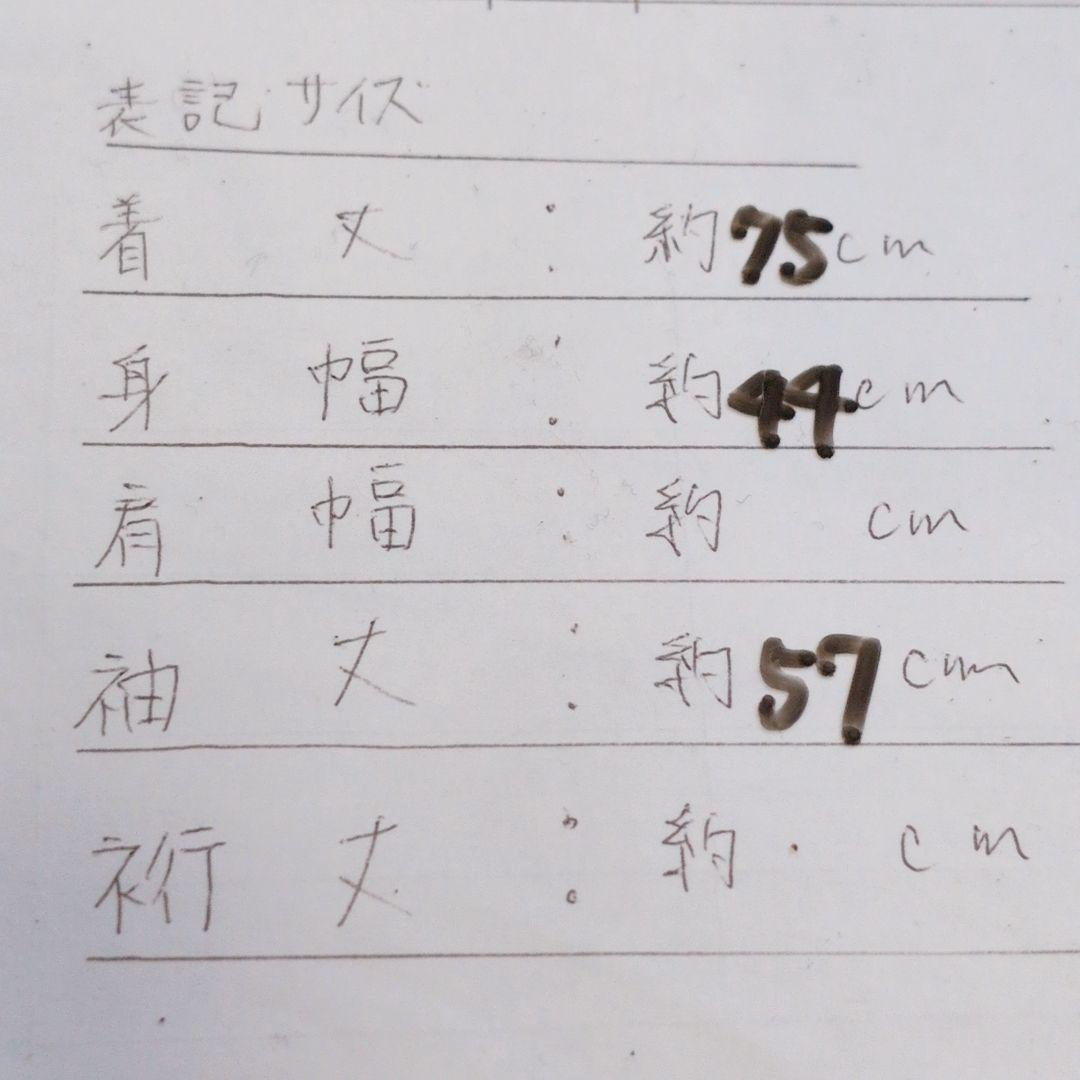 表記サイズ
着丈：約75cm
身幅：約44cm
肩幅：約　cm
袖丈：約57cm
裄丈：約　cm